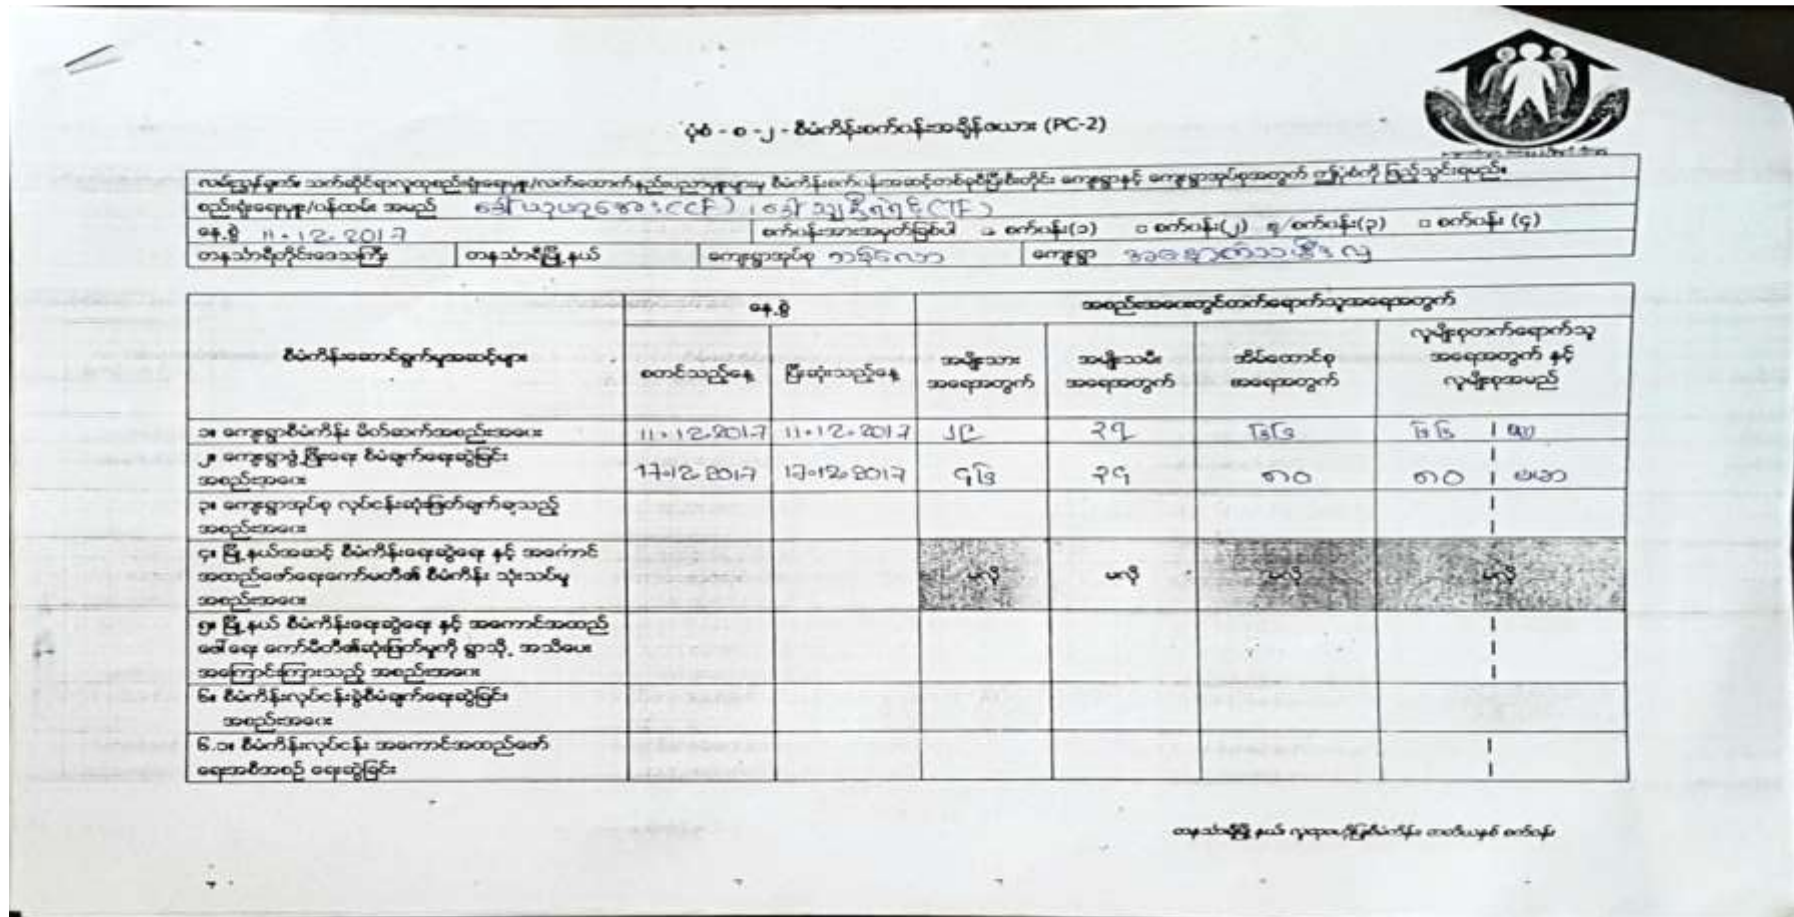 ပုံစံ - စ -၂ - စီမံကိန်းစက်ဝန်းအချိန်ဇယား (PC-2)
လမ်းညွှန်ချက်။ သက်ဆိုင်ရာလူထုစည်းရုံးရေးမှူး/လက်ထောက်နည်းပညာမှူးများမှ စီမံကိန်းစက်ဝန်းအဆင့်တစ်ခုစီပြီးစီးတိုင်း ကျေးရွာနှင့် ကျေးရွာအုပ်စုအတွက် ဤပုံစံကို ဖြည့်သွင်းရမည်။
စည်းရုံးရေးမှူး/ဝန်ထမ်း အမည် (CCF) ၊ ဒေါ် (CTF)
နေ့စွဲ 11.12.2017 စက်ဝန်းအားအမှတ်ခြစ်ပါ စက်ဝန်း(၁) □ စက်ဝန်း(၂) စက်ဝန်း(၃) □ စက်ဝန်း (၄)
တနင်္သာရီတိုင်းဒေသကြီး တနင်္သာရီမြို့နယ် ကျေးရွာအုပ်စု ကျေးရွာ
နေ့စွဲ အစည်းအဝေးတွင်တက်ရောက်သူအရေအတွက်
စီမံကိန်းဆောင်ရွက်မှုအဆင့်များ စတင်သည့်နေ့ ပြီးဆုံးသည့်နေ့ အမျိုးသား အရေအတွက် အမျိုးသမီး အရေအတွက် အိမ်ထောင်စု အရေအတွက် လူမျိုးစုတက်ရောက်သူ အရေအတွက် နှင့် လူမျိုးစုအမည်
၁။ ကျေးရွာစီမံကိန်း မိတ်ဆက်အစည်းအဝေး 11.12.2017 11.12.2017 ၂၉ ၃၇ ၆၆ ၆၆
၂။ ကျေးရွာဖွံ့ဖြိုးရေး စီမံချက်ရေးဆွဲခြင်း
အစည်းအဝေး 17.12.2017 17.12.2017 ၄၆ ၃၄ ၈၀ ၈၀ ဗမာ
၃။ ကျေးရွာအုပ်စု လုပ်ငန်းဆုံးဖြတ်ချက်ချသည့်
အစည်းအဝေး
၄။ မြို့နယ်အဆင့် စီမံကိန်းရေးဆွဲရေး နှင့် အကောင်
အထည်ဖော်ရေးကော်မတီ၏ စီမံကိန်း သုံးသပ်မှု မလို မလို မလို မလို
အစည်းအဝေး
၅။ မြို့နယ် စီမံကိန်းရေးဆွဲရေး နှင့် အကောင်အထည်
ဖေါ်ရေး ကော်မီတီ၏ဆုံးဖြတ်မှုကို ရွာသို့ အသိပေး
အကြောင်းကြားသည့် အစည်းအဝေး
၆။ စီမံကိန်းလုပ်ငန်းခွဲစီမံချက်ရေးဆွဲခြင်း
အစည်းအဝေး
၆.၁။ စီမံကိန်းလုပ်ငန်း အကောင်အထည်ဖော်
ရေးအစီအစဉ် ရေးဆွဲခြင်း
တနင်္သာရီမြို့နယ် လူထုဗဟိုပြုစီမံကိန်း တတိယနှစ် စက်ဝန်း